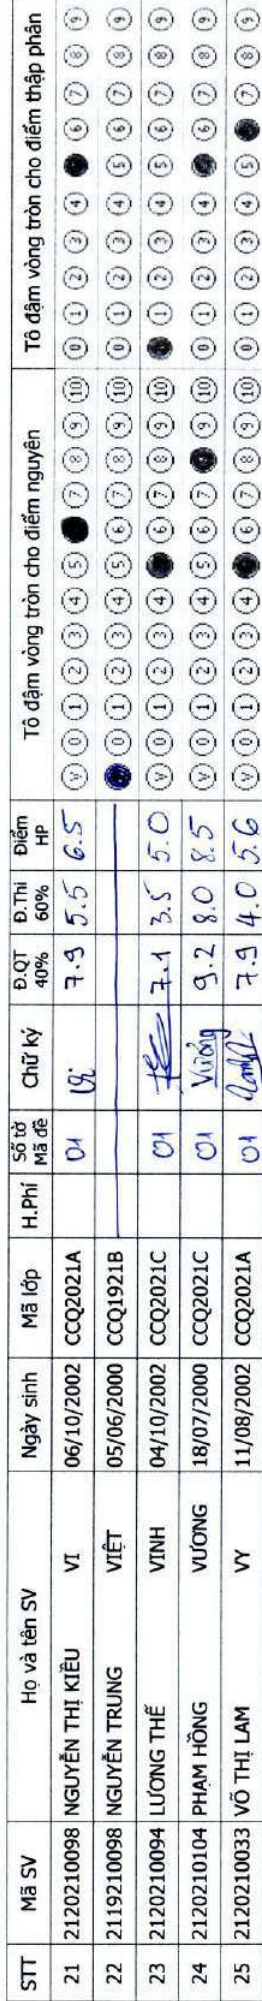 STT Mã SV Họ và tên SV Ngày sinh Mã lớp H.Phí Số tờ Mã đề Chữ ký Đ.QT 40% Đ.Thi 60% Điểm HP Tô đậm vòng tròn cho điểm nguyên Tô đậm vòng tròn cho điểm thập phân
21 2120210098 NGUYỄN THỊ KIỀU VI 06/10/2002 CCQ2021A 01 Vi 7.9 5.5 6.5 V 0 1 2 3 4 5 7 8 9 10 0 1 2 3 4 6 7 8 9
22 2119210098 NGUYỄN TRUNG VIỆT 05/06/2000 CCQ1921B 0 1 2 3 4 5 6 7 8 9 10 0 1 2 3 4 5 6 7 8 9
23 2120210094 LƯƠNG THẾ VINH 04/10/2002 CCQ2021C 01 7.1 3.5 5.0 V 0 1 2 3 4 6 7 8 9 10 1 2 3 4 5 6 7 8 9
24 2120210104 PHẠM HỒNG VƯƠNG 18/07/2000 CCQ2021C 01 Vương 9.2 8.0 8.5 V 0 1 2 3 4 5 6 7 9 10 0 1 2 3 4 6 7 8 9
25 2120210033 VÕ THỊ LAM VY 11/08/2002 CCQ2021A 01 7.9 4.0 5.6 V 0 1 2 3 4 6 7 8 9 10 0 1 2 3 4 5 7 8 9